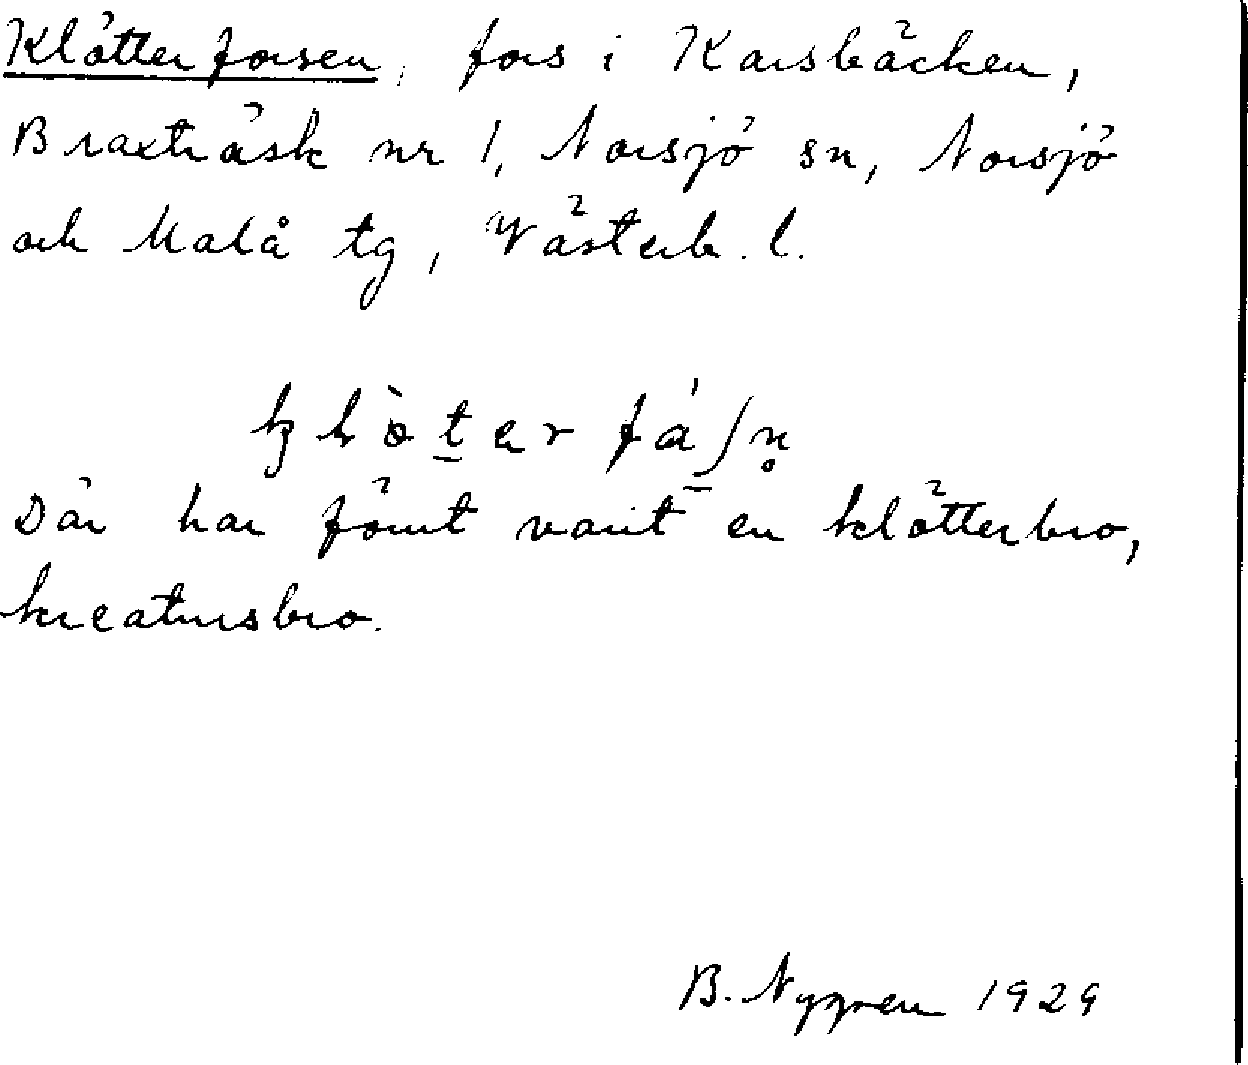 Klötterforsen, fors i Karsbäcken,
Braxträsk nr 1, Norsjö sn, Norsjö
och Malå tg, Västerb. l.
Där har förut varit en klötterbro,
kreatursbro.
B. Nygren 1929